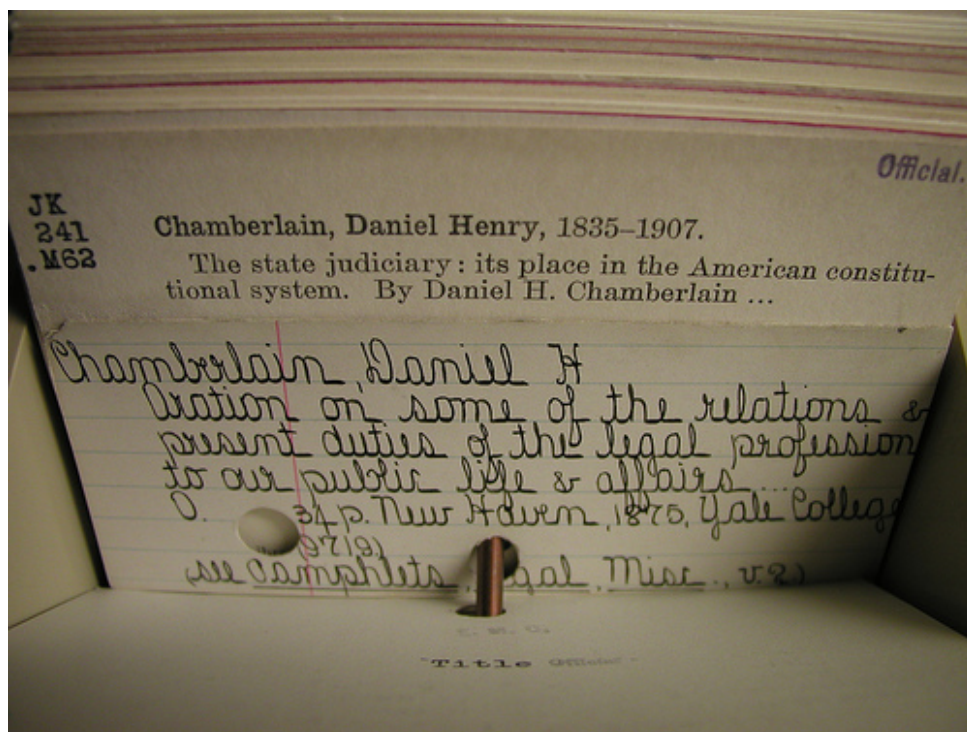 Official.
JK
241
.M62
Chamberlain, Daniel Henry, 1835–1907.
The state judiciary: its place in the American constitu-
tional system. By Daniel H. Chamberlain ...
Chamberlain, Daniel H
Oration on some of the relations &
present duties of the legal profession
to our public life & affairs...
O. 34 p. New Haven, 1875, Yale College
(see Pamphlets, Misc., v.2)
Title